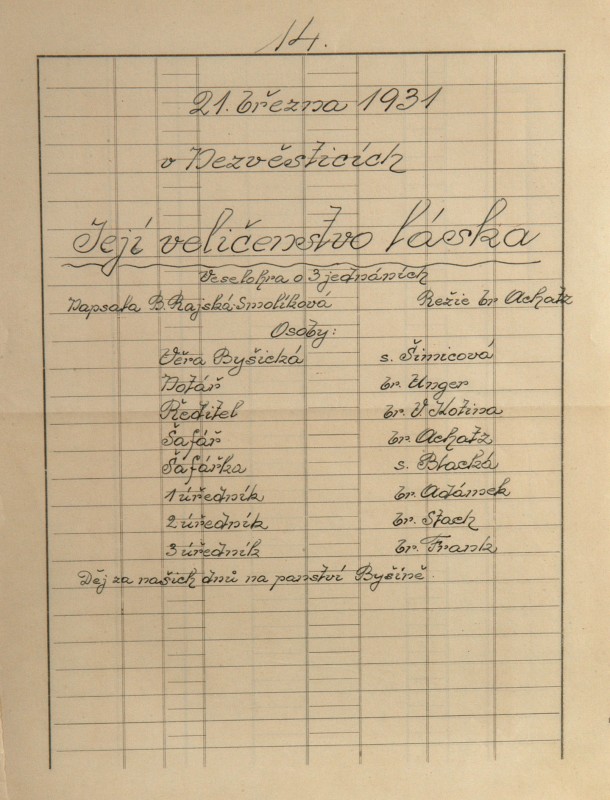 14.
21. března 1931
v Nezvěsticích
Její veličenstvo láska
Veselohra o 3 jednáních
Napsala B. Rajská-Smolíková Režie br Achatz
Osoby:
Věra Byšická s. Šimicová
Notář br. Unger
Ředitel br. V. Kotina
Šafář br. Achatz
Šafářka s. Blacká
1 úředník br. Adámek
2 úředník br. Stach
3 úředník br. Frank
Děj za našich dnů na panství Byšíně.